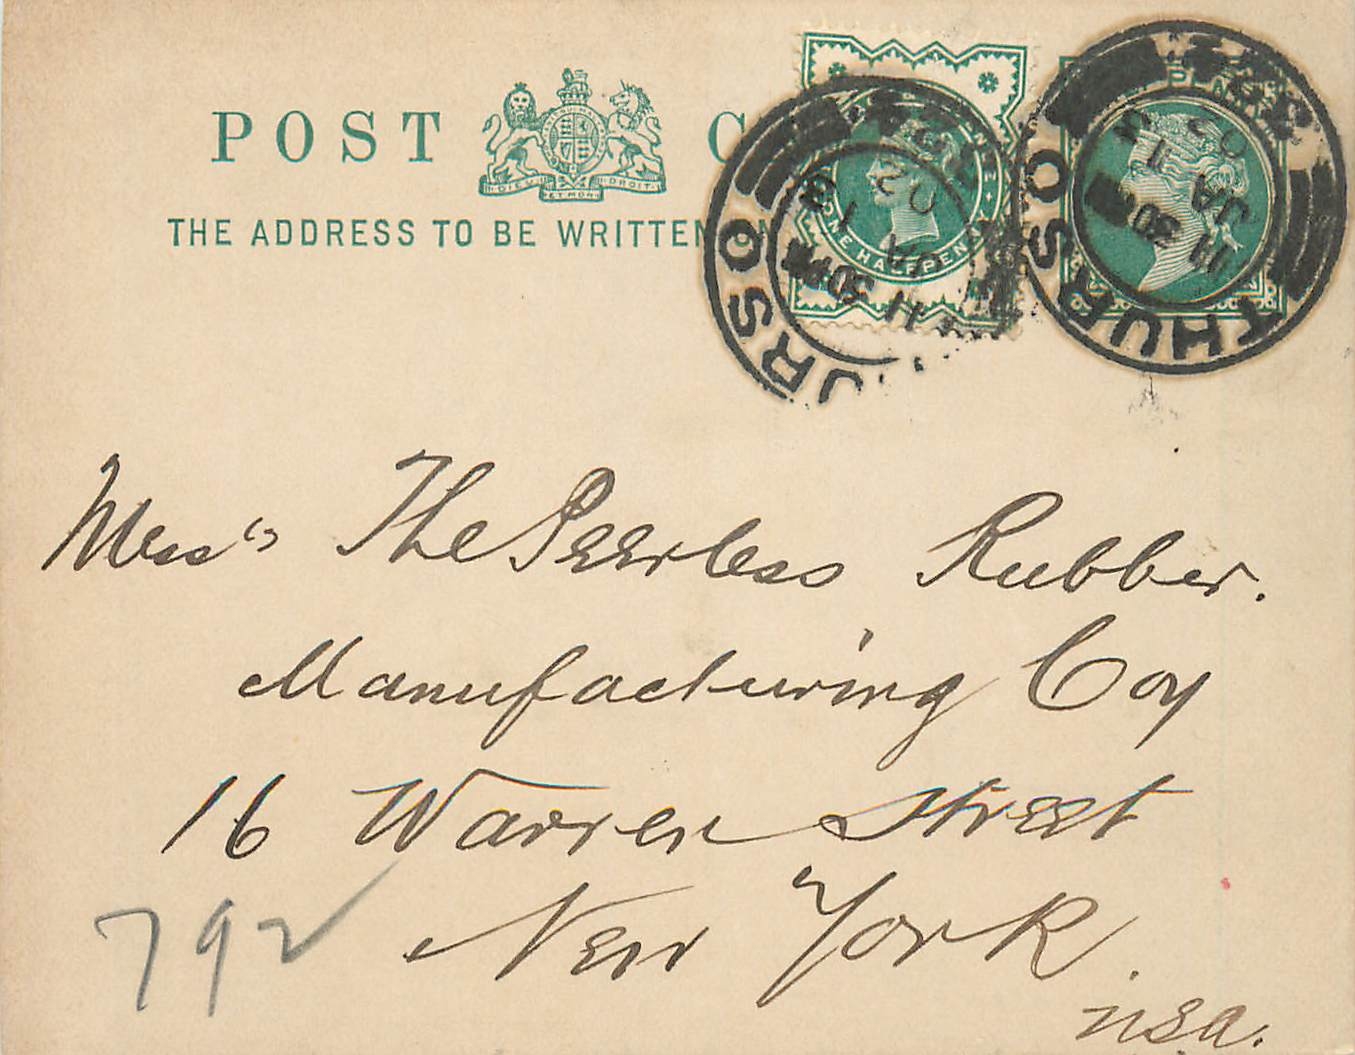 POST C
DIEU ET MON DROIT
THE ADDRESS TO BE WRITTEN ON
ONE HALFPENNY
THURSO
11 30 PM
JA 13
02
THURSO
11 30 PM
JA 13
02
Mess's The Peerless Rubber.
Manufacturing Coy
16 Warren Street
New York.
USA.
792